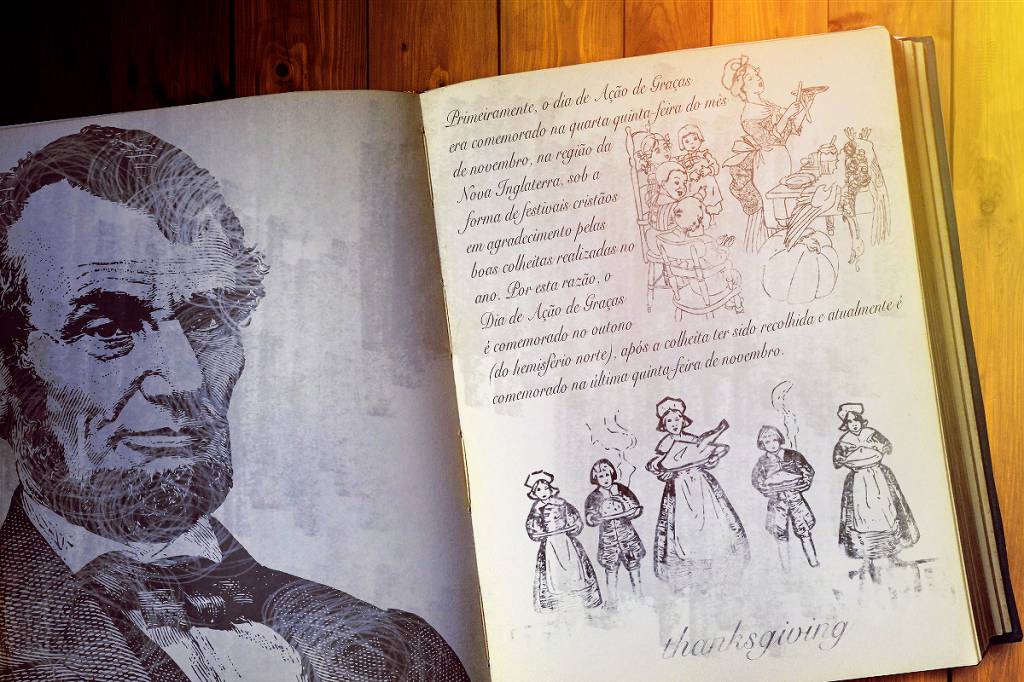 Primeiramente, o dia de Ação de Graças
era comemorado na quarta quinta-feira do mês
de novembro, na região da
Nova Inglaterra, sob a
forma de festivais cristãos
em agradecimento pelas
boas colheitas realizadas no
ano. Por esta razão, o
Dia de Ação de Graças
é comemorado no outono
(do hemisfério norte), após a colheita ter sido recolhida e atualmente é
comemorado na última quinta-feira de novembro.
thanksgiving